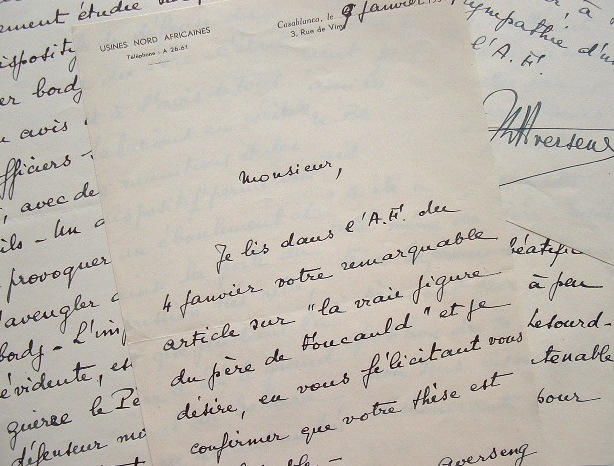 USINES NORD AFRICAINES
Téléphone : A 26-61
Casablanca, le 9 janvier
3, Rue de
Monsieur,
Je lis dans l'A.F. du
4 janvier votre remarquable
article sur "la vraie figure
du père de Foucauld" et je
désire, en vous félicitant vous
confirmer que votre thèse est
averseng
étudie
bordj
avis
officiers -
, avec des
ils - Un
provoquer
aveugler
bordj - L'im
évidente, es
guerre le Pè
défenseur
sympathie d'u
l'A.F.
Averseng
à peu
tenable
pour